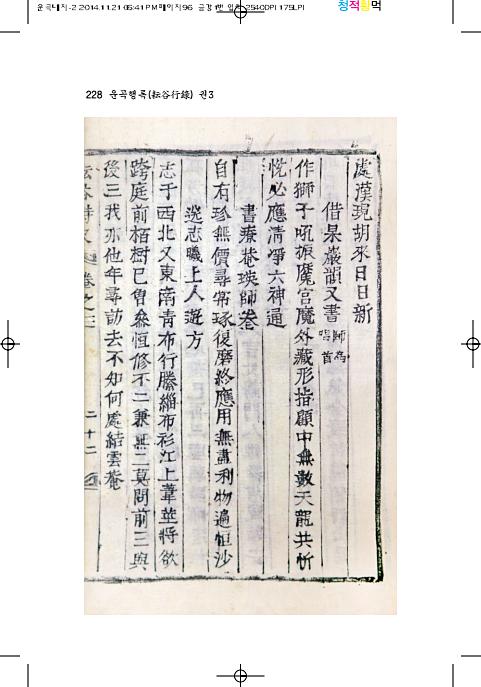 운곡대지-2 2014.11.21 05:41 PM 페이지96
2540DPI 175LPI
청적황먹
228 운곡행록(耘谷行錄) 권3
處漢現胡來日日新
借杲巖韻又書 師爲唱首
作獅子吼振魔宮魔外藏形指顧中無數天龍共忻
悅必應清淨六神通
書療菴瑛師卷
自有珎無價尋常琢復磨終應用無盡利物遍恒沙
送志曦上人遊方
志于西北又東南青布行縢緇布衫江上葦莖將欲
跨庭前栢樹已曾叅恒修不二兼無二莫問前三與
後三我亦他年尋訪去不知何處結雲菴
卷之三
二十二